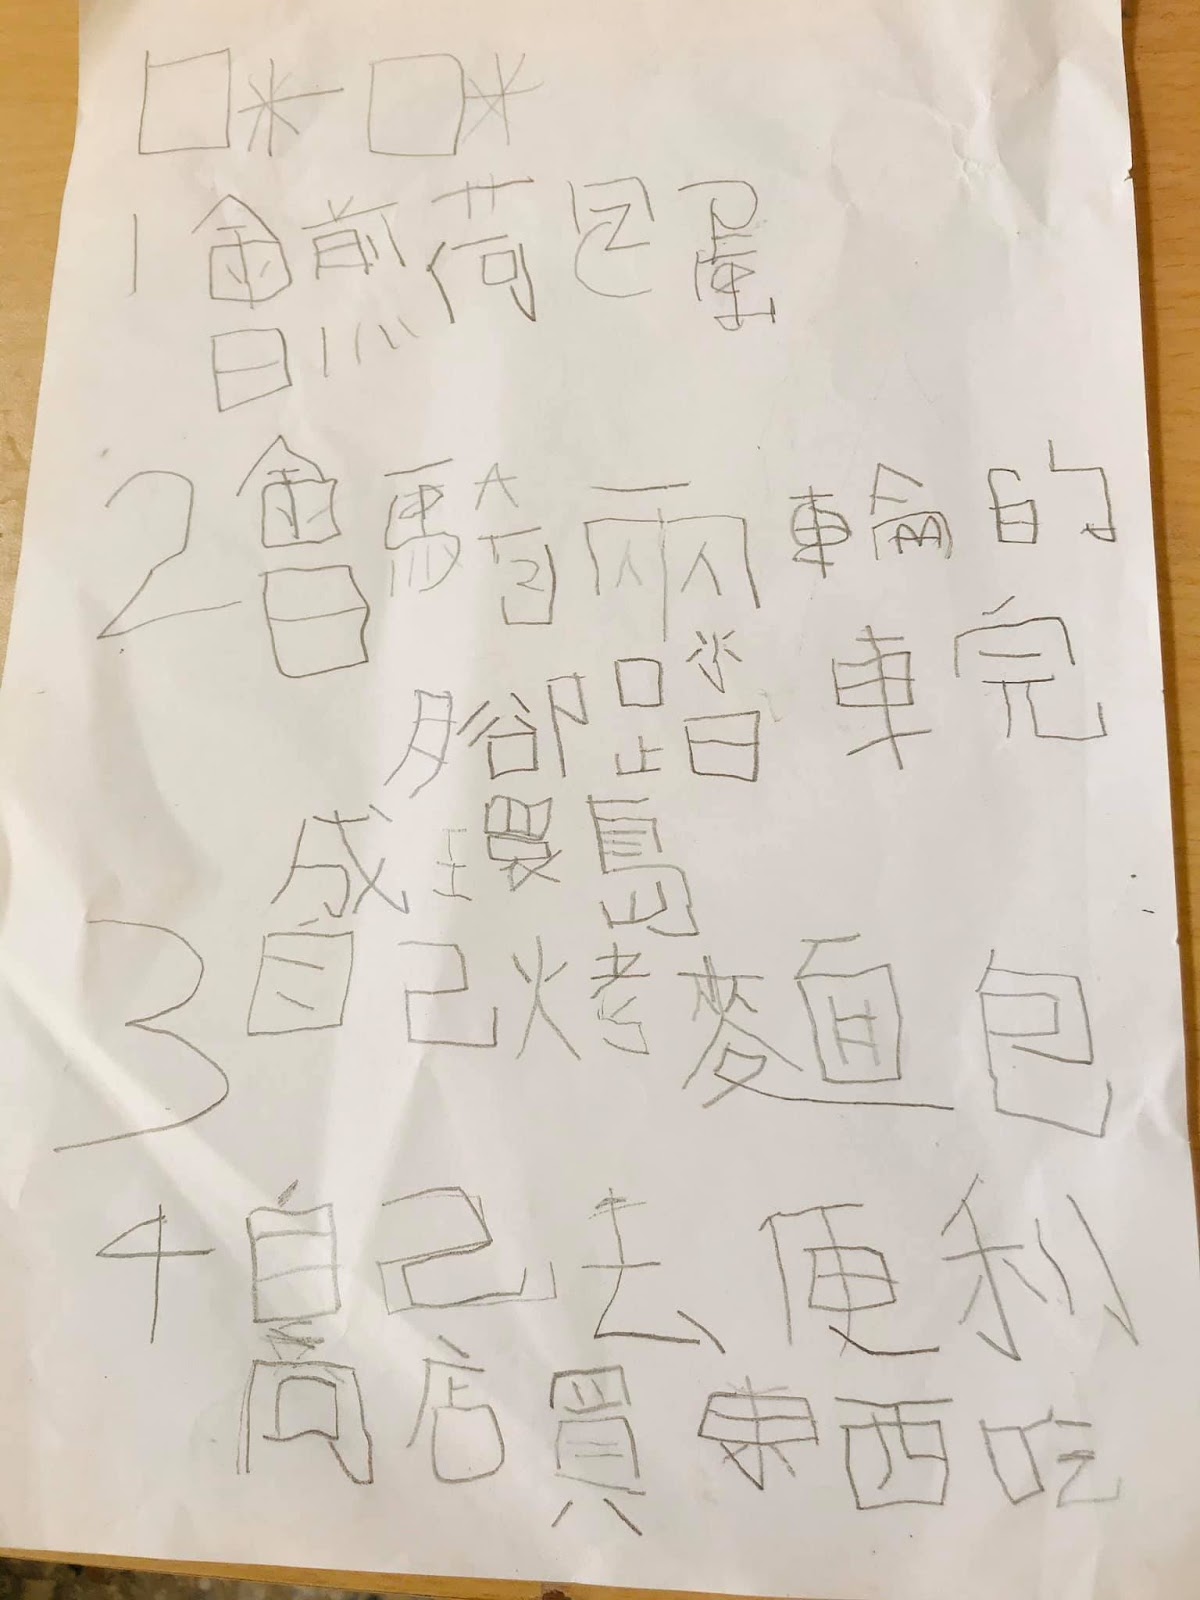 口米口米
1會煎荷包蛋
2會騎兩輪的
腳踏車完
成環島
3自己烤麵包
4自己去便利
商店買東西吃